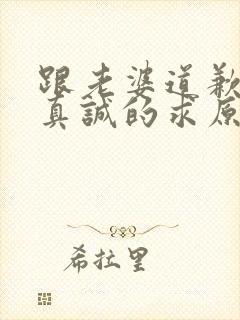 跟老婆道歉
真誠的求原
希拉里